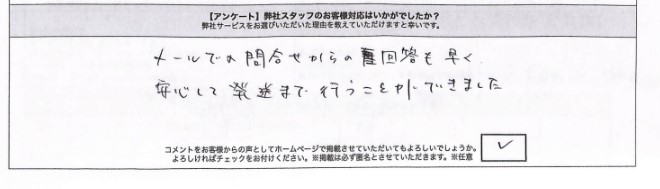 【アンケート】弊社スタッフのお客様対応はいかがでしたか？
弊社サービスをお選びいただいた理由を教えていただけますと幸いです。
メールでの問合せからの回答も早く
安心して発送まで行うことができました
コメントをお客様からの声としてホームページで掲載させていただいてもよろしいでしょうか。
よろしければチェックをお付けください。※掲載は必ず匿名とさせていただきます。※任意